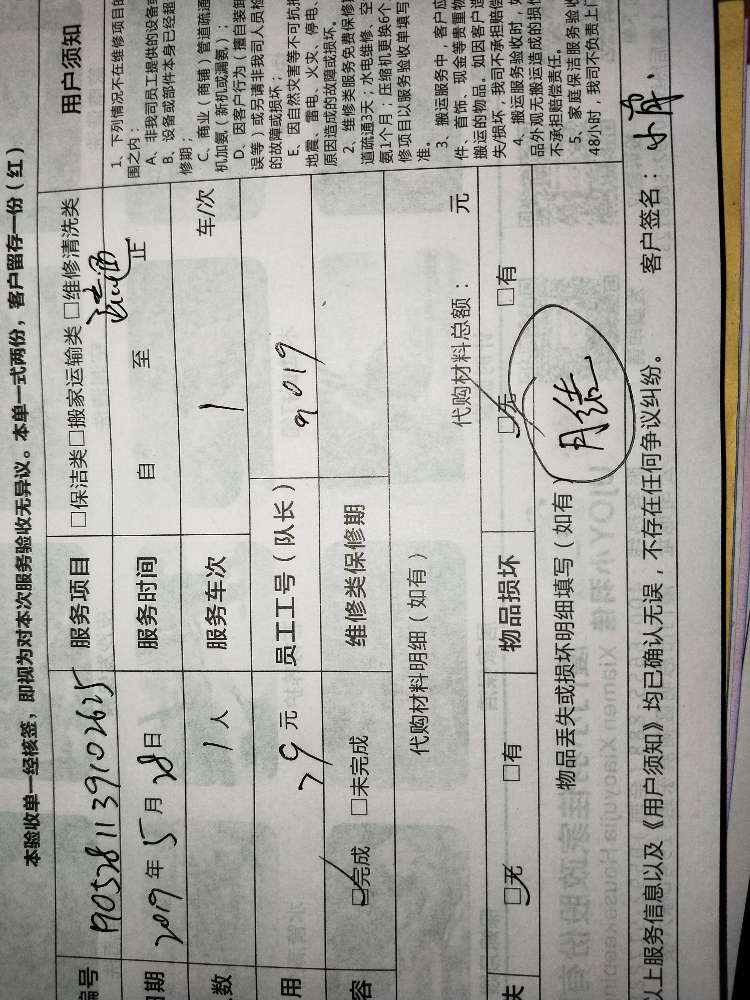 本验收单一经核签，即视为对本次服务验收无异议。本单一式两份，客户留存一份（红）
编号 1905281139102625 服务项目 □保洁类□搬家运输类 □维修清洗类 疏通
日期 2019年5月28日 服务时间 自 至 止
数 1人 服务车次 1 车/次
用 79元 员工工号（队长） 9019
容 ☑完成 □未完成 维修类保修期
代购材料明细（如有） 代购材料总额： 元
失 ☑无 □有 物品损坏 ☑无 □有
物品丢失或损坏明细填写（如有） 月结
以上服务信息以及《用户须知》均已确认无误，不存在任何争议纠纷。 客户签名：小
用户须知
1、下列情况不在维修项目的
围之内：
A、非我司员工提供的设备或
B、设备或部件本身已经超
修期；
C、商业（商铺）管道疏通
机加氨（新机或漏氨）；
D、因客户行为（擅自装卸
误等）或另请非我司人员检
的故障或损坏；
E、因自然灾害等不可抗拒
地震、雷电、火灾、停电、
原因造成的故障或损坏。
2、维修类服务免费保修
道疏通3天；水电维修、空
氨1个月；压缩机更换6个
修项目以服务验收单填写
准。
3、搬运服务中，客户应
件、首饰、现金等贵重物
搬运的物品。如因客户造
失/损坏，我司不承担赔偿
4、搬运服务验收时，如
品外观无搬运造成的损伤
不承担赔偿责任。
5、家庭保洁服务验收
48小时，我司不负责上门